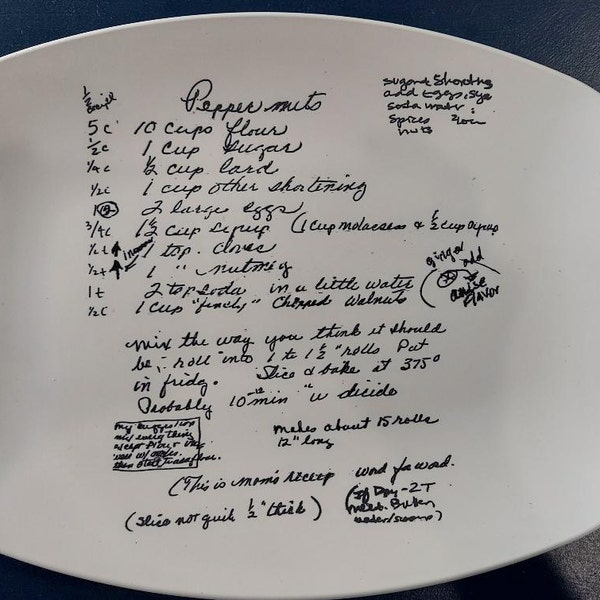 Pepper nuts
sugar & Shortning
add Eggs, Syp
soda water
spices
nuts
1/2
5 c 10 cups flour
1/2 c 1 cup sugar
1/4 c 1/2 cup lard
1/2 c 1 cup other shortening
1 2 large eggs
3/4 c 1 1/2 cup syrup (1 cup molasses & 1/2 cup syrup
1/2 t 1 tsp. cloves
1/2 t 1 " nutmeg
1 t 2 tsp soda in a little water
1/2 c 1 cup "finely" chopped walnuts
ginger add
flavor
mix the way you think it should
be, roll into 1 to 1 1/2" rolls Put
in fridg. Slice & bake at 375°
Probably 10-12 min "u decide
my suggestion
mix everything
except flour &
well w/
then
makes about 15 rolls
12" long
(This is mom's receip word for word.
(slice not quit 1/2" thick)
(If Dry - 2T
melt. Butter